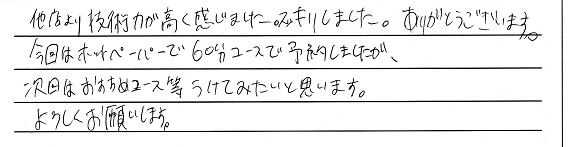 他店より技術力が高く感じました。スッキリしました。ありがとうございます。
今回はホットペーパーで60分コースで予約しましたが、
次回はおすすめコース等うけてみたいと思います。
よろしくお願いします。